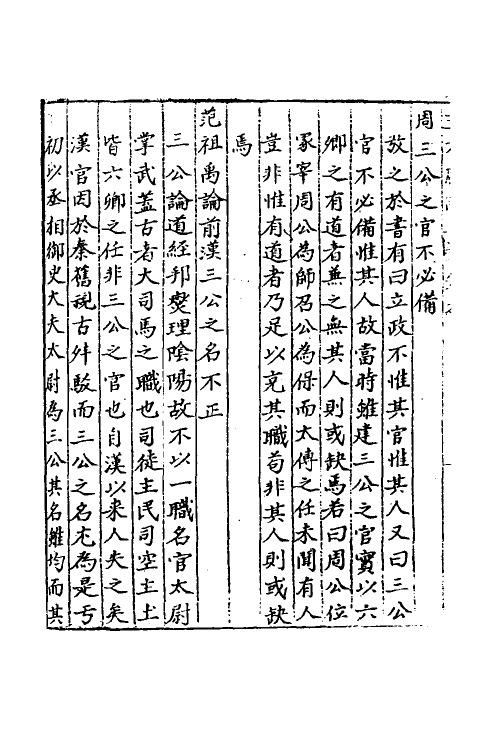 周三公之官不必備
攷之於書有曰立政不惟其官惟其人又曰三公
官不必備惟其人故當時雖建三公之官實以六
卿之有道者兼之無其人則或缺焉若曰周公位
冢宰周公為師召公為保而太傅之任未聞有人
豈非惟有道者乃足以充其職苟非其人則或缺
焉
范祖禹論前漢三公之名不正
三公論道經邦燮理陰陽故不以一職名官太尉
掌武盖古者大司馬之職也司徒主民司空主土
皆六卿之任非三公之官也自漢以來人失之矣
漢官因於秦舊視古舛駮而三公之名尤為是亏
初以丞相御史大夫太尉為三公其名雖均而其